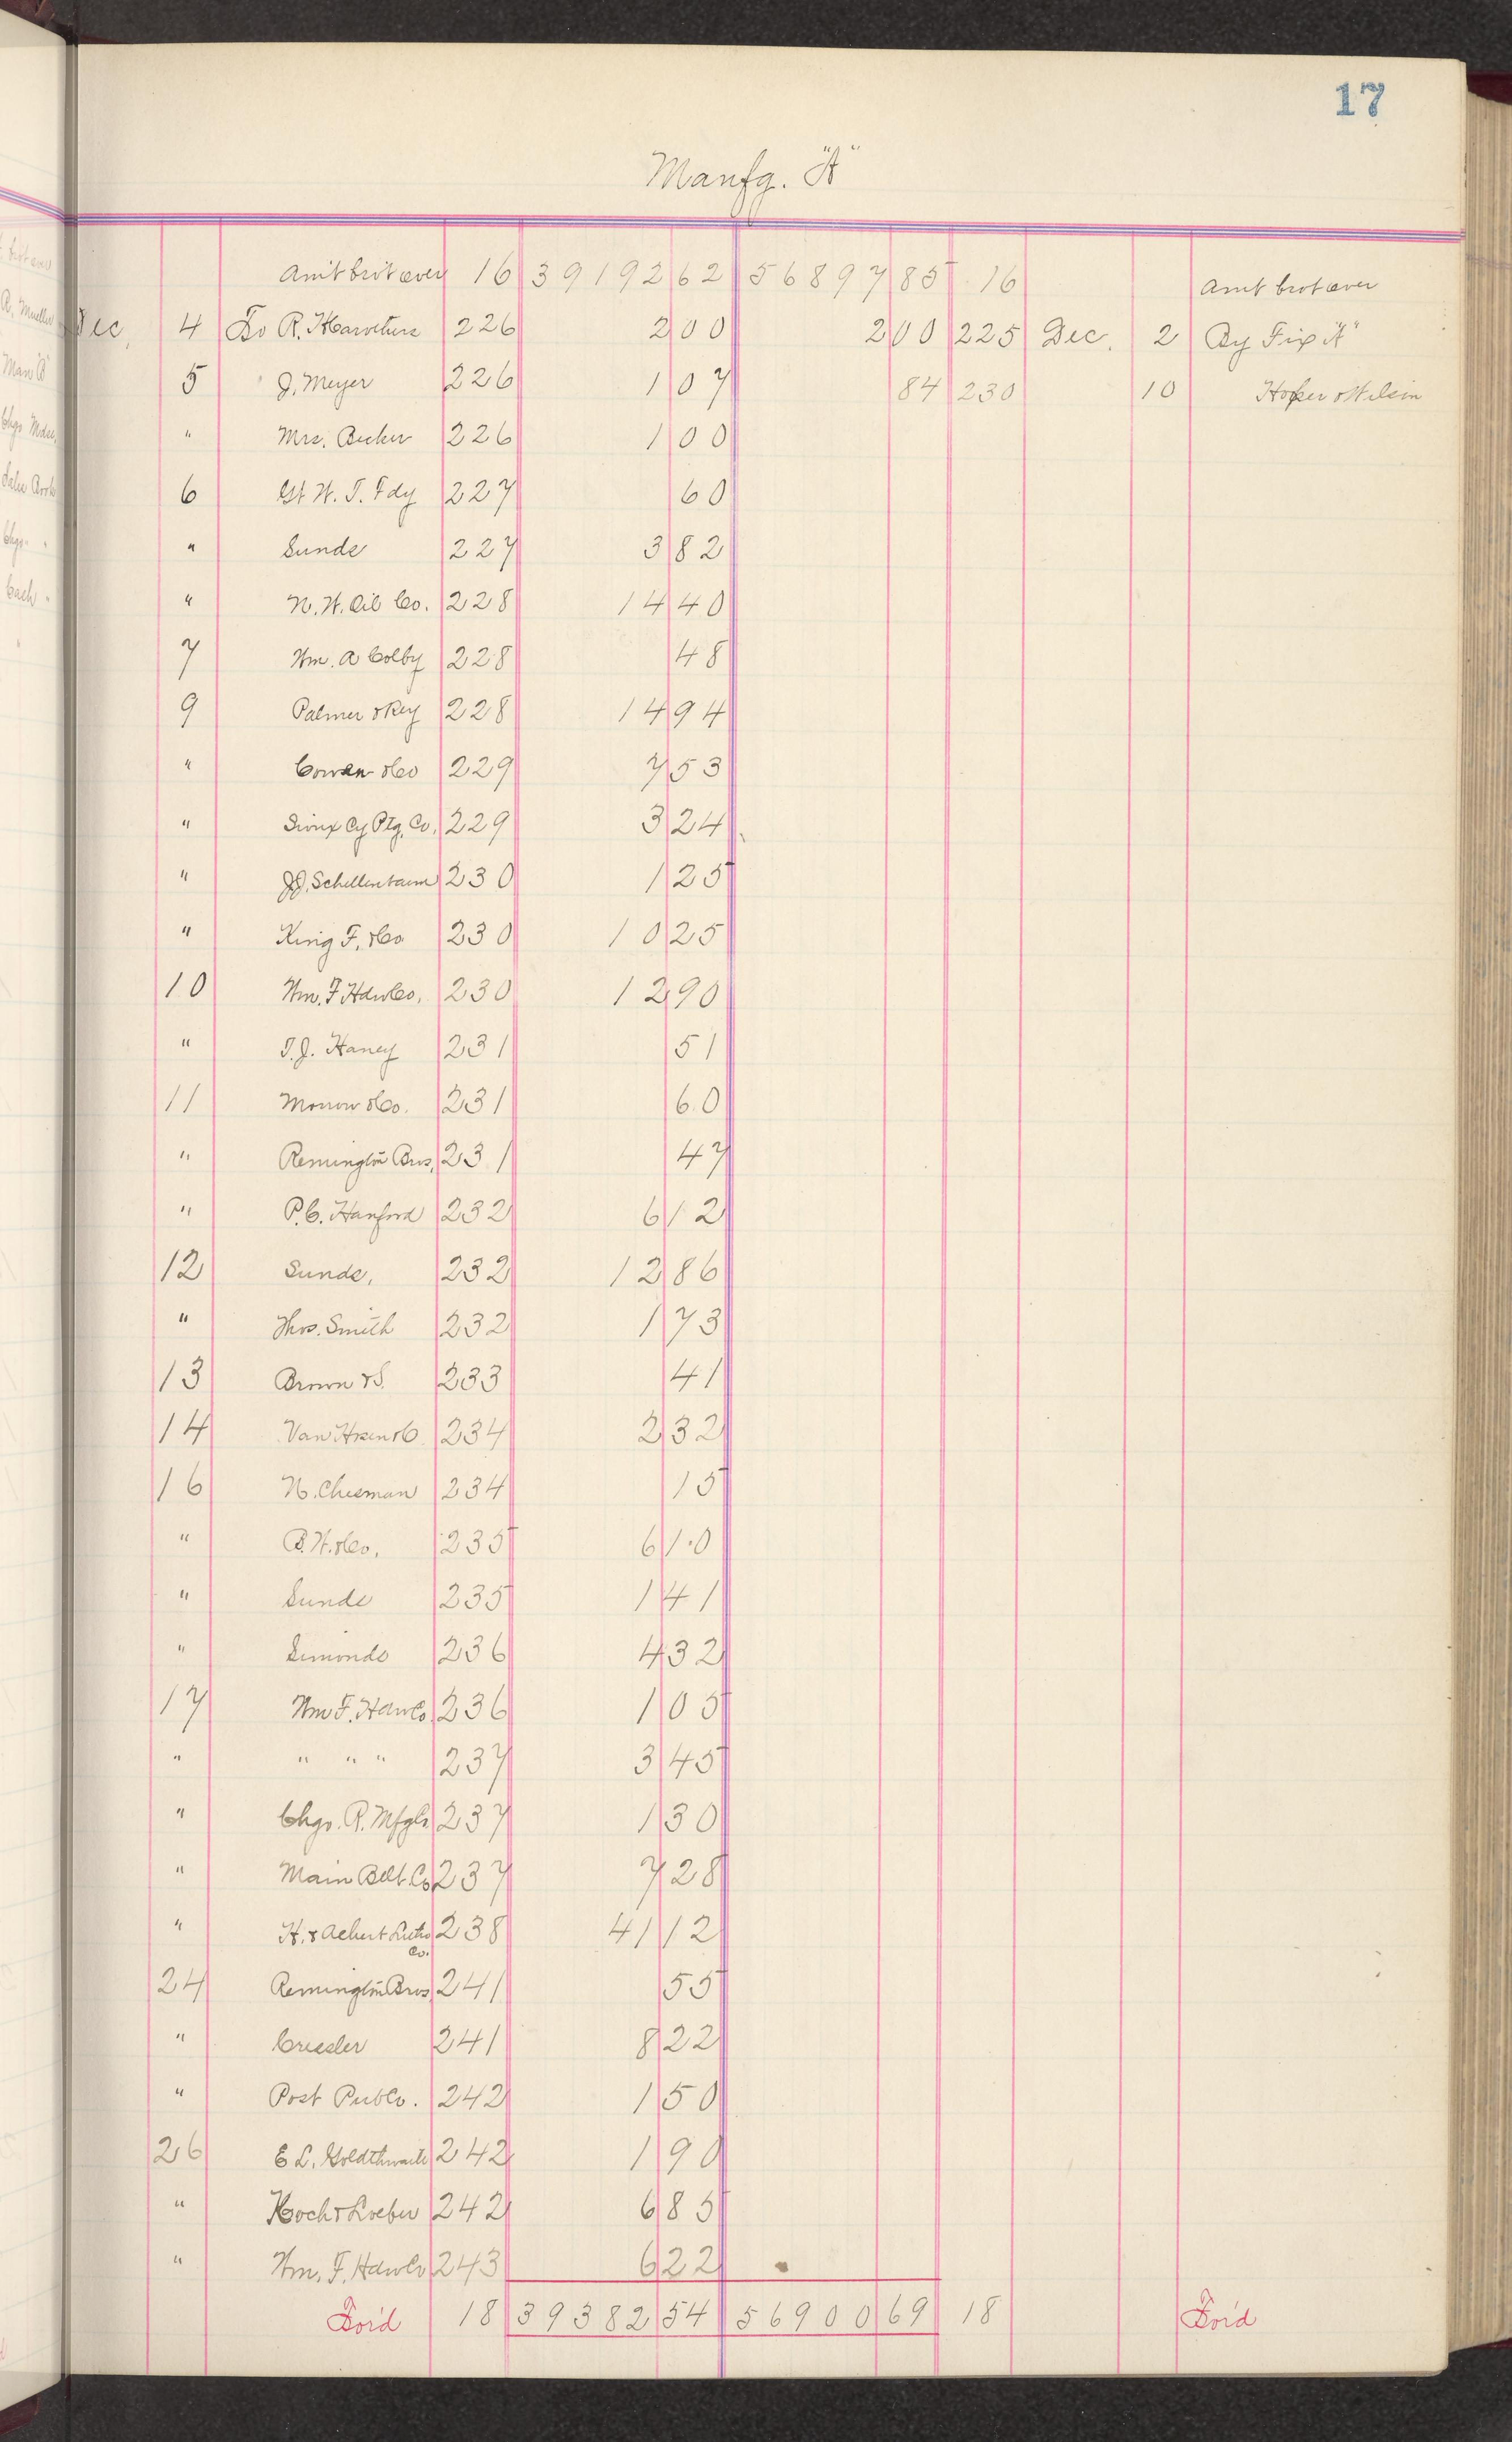 17
Manfg. "A"
Amt brot over 16 39192 62 56897 85 16 Amt brot over
Dec. 4 To R. 226 2 00 2 00 225 Dec. 2 By Fix "A"
5 " J. Meyer 226 1 07 84 230 10 Hooper & Wilson
" Mrs. Becker 226 1 00
6 Gt W. T. Fdy 227 60
" Sunde 227 3 82
" N. W. Oil Co. 228 14 40
7 Wm. A Colby 228 48
9 Palmer & Rey 228 14 94
" Cowan & Co 229 7 53
" Sioux Cy Ptg. Co. 229 3 24
" J.J. 230 1 25
" King F. & Co 230 10 25
10 Wm. F Hdw Co. 230 12 90
" T. J. Haney 231 51
11 Morrow & Co. 231 60
" Remington Bros. 231 47
" P. C. Hanford 232 6 12
12 Sunde, 232 12 86
" Thos. Smith 232 1 73
13 Brown & S. 233 41
14 234 2 32
16 N. Chesman 234 15
" B. W. & Co. 235 6 10
" Sunde 235 1 41
" Simonds 236 4 32
17 Wm F. Hdw Co. 236 1 05
" " " " 237 3 45
" Chgo. R. Mfg Co 237 1 30
" Main Belt. Co 237 7 28
" H. & Achert Litho Co. 238 41 12
24 Remington Bros 241 55
" Creesler 241 8 22
" Post Pub Co. 242 1 50
26 E L. Goldthwaite 242 1 90
" Koch & Loeber 242 6 85
" Wm. F. Hdw Co 243 6 22
For'd 18 39382 54 56900 69 18 For'd